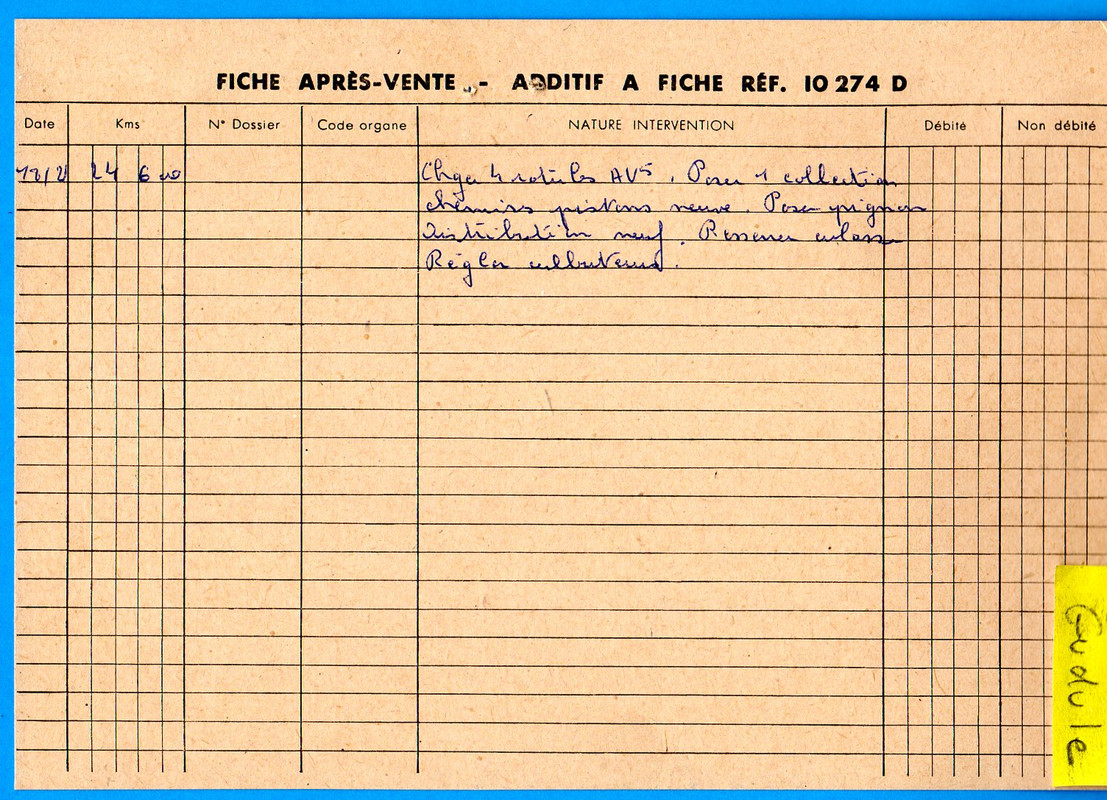 FICHE APRÈS-VENTE - ADDITIF A FICHE RÉF. 10 274 D
Date Kms N° Dossier Code organe NATURE INTERVENTION Débité Non débité
24 6 Chger 4 rotules AVS. Poser 1 collection
chemises pistons neuve. Poser pignon
distribution neuf. Resserrer culasse
Régler culbuteurs.
Gudule